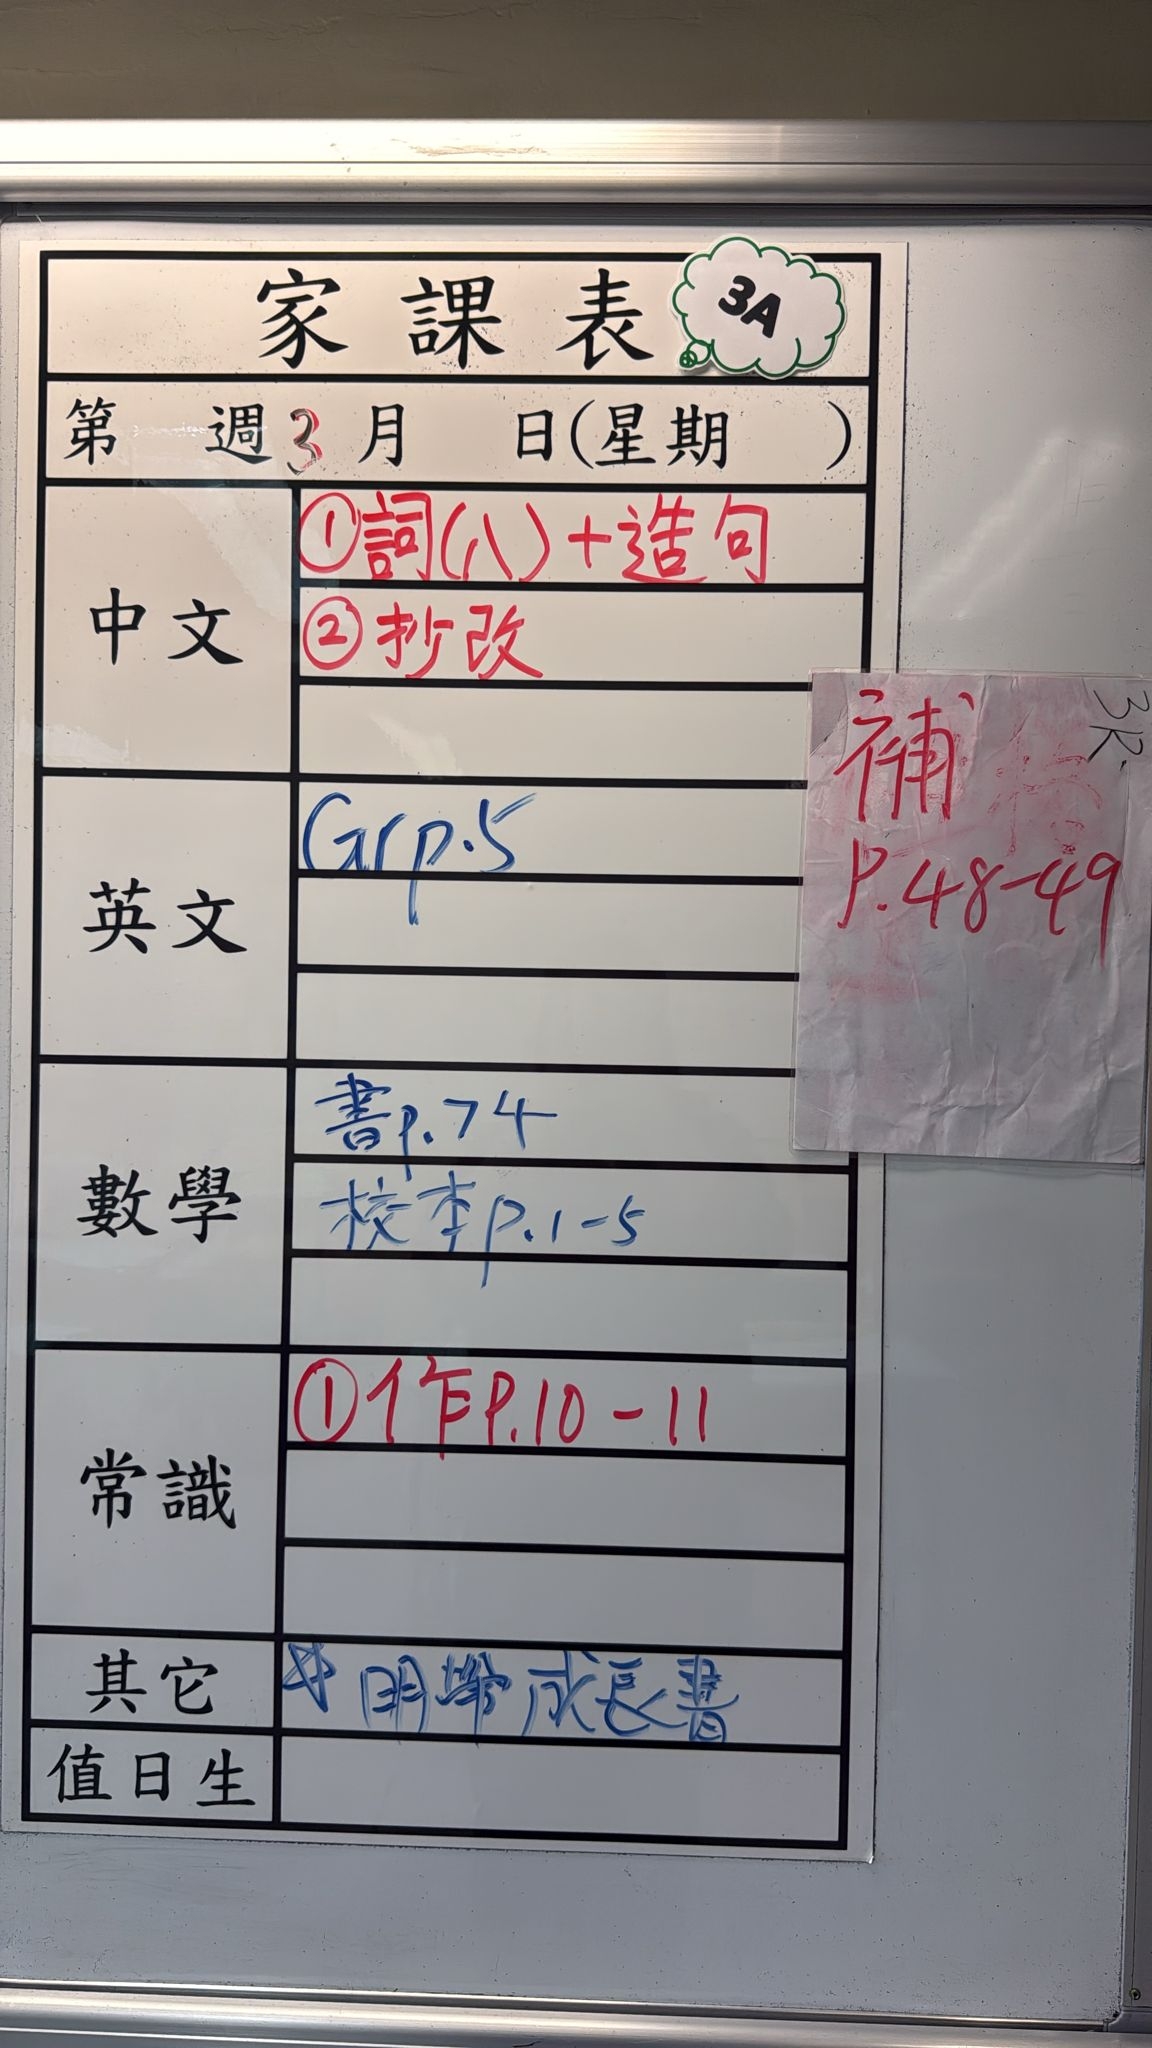 家課表
3A
第 週 3 月 日(星期 )
中文
①詞(八)+造句
②抄改
補
3R
P.48-49
英文
Gr p.5
數學
書p.74
校本p.1-5
常識
①作P.10-11
其它
明帶成長書
值日生